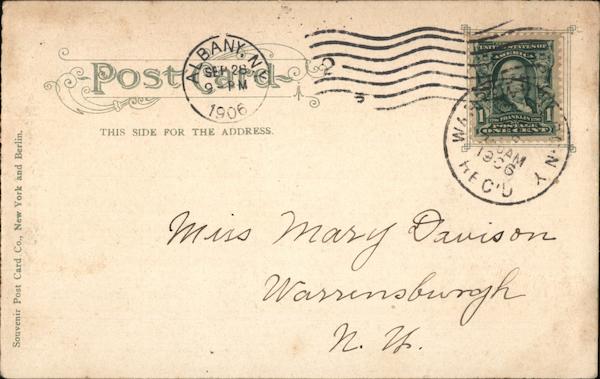 Post Card
THIS SIDE FOR THE ADDRESS.
ALBANY, N.Y.
SEP 28
9 - PM
1906
UNITED STATES OF
AMERICA
FRANKLIN
1 POSTAGE 1
ONE CENT
N.Y.
AM
1906
REC'D
Miss Mary Davison
Warrensburgh
N. Y.
Souvenir Post Card Co., New York and Berlin.